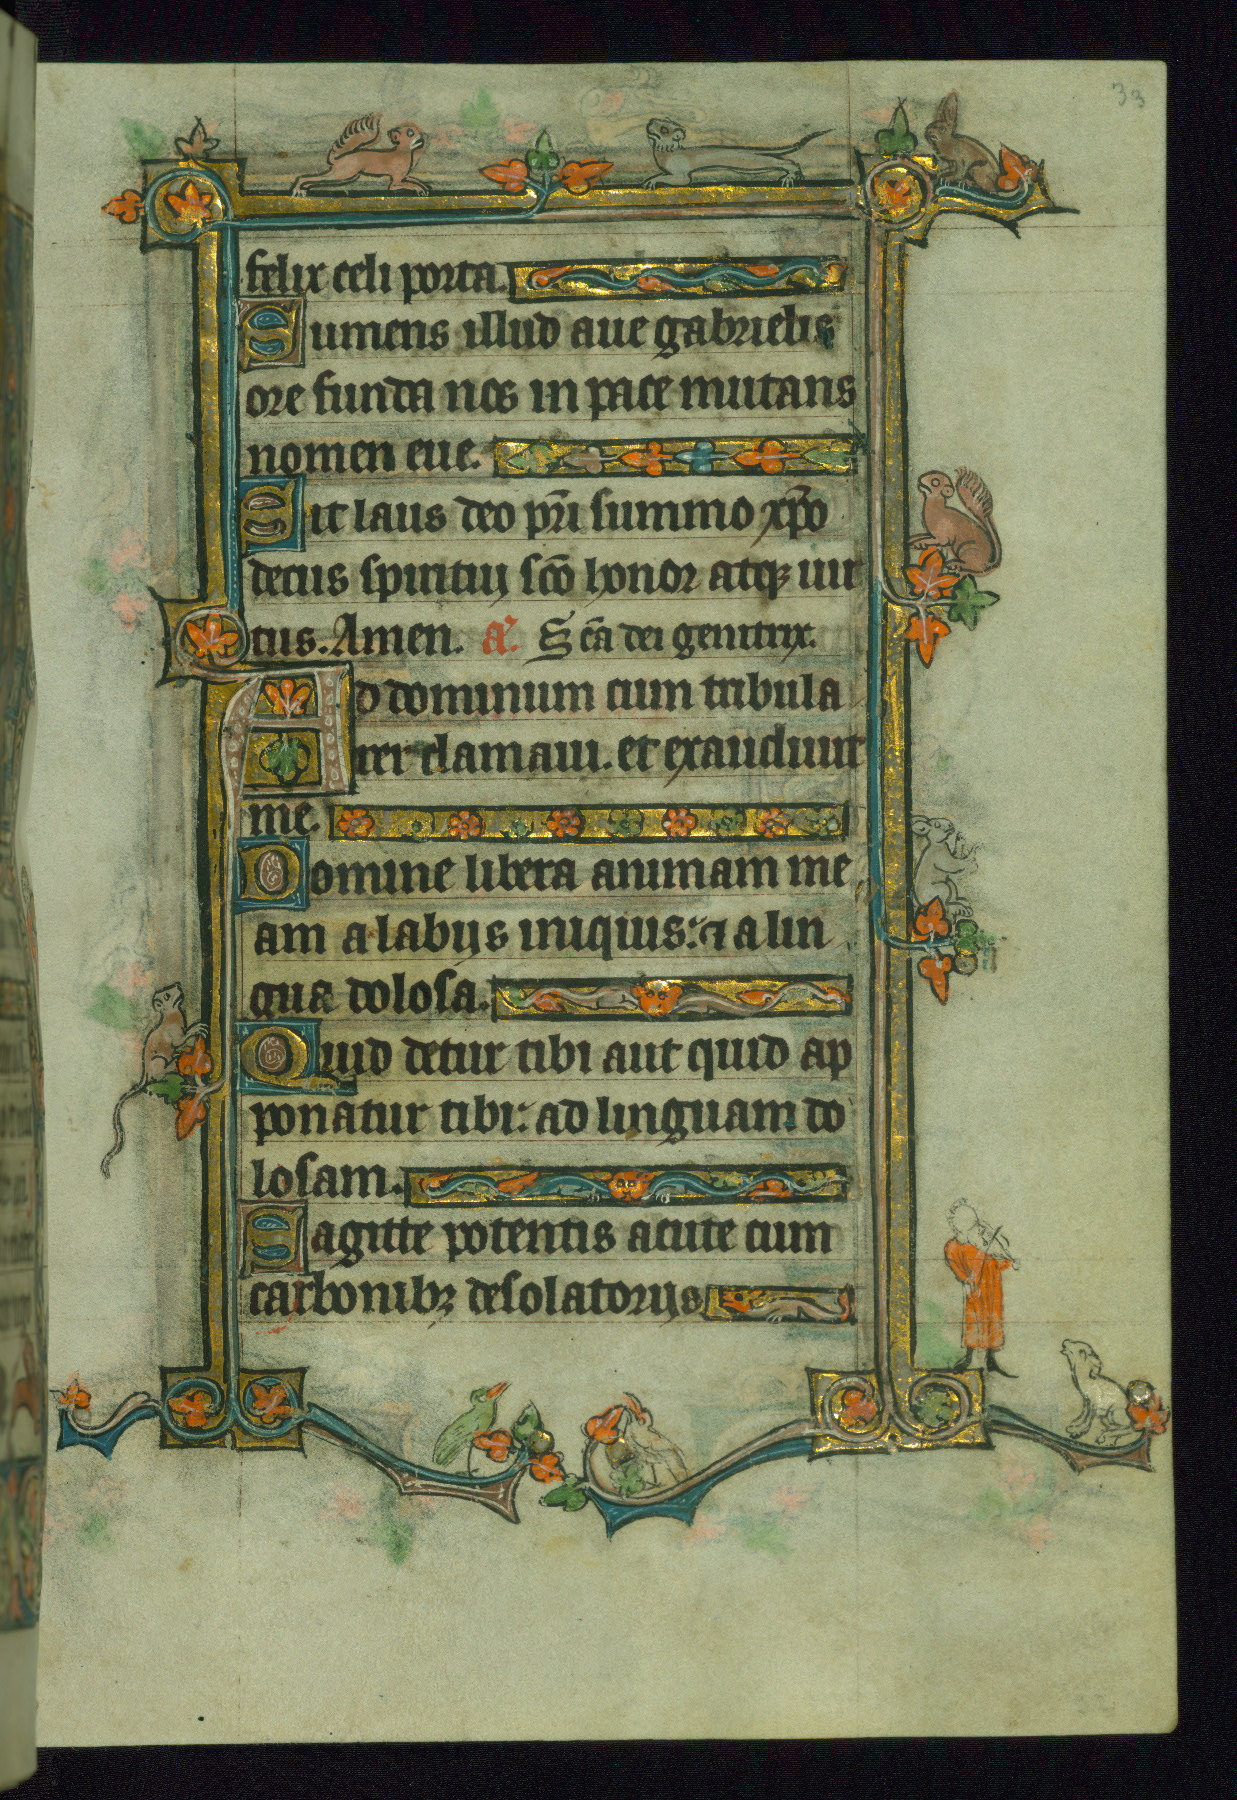 33
felix celi porta.
Sumens illud aue gabrielis
ore funda nos in pace mutans
nomen eue.
Sit laus deo pr̄i summo xp̄o
decus spiritui sc̄o honor atqꝫ uir
tus. Amen. a͛. Sc̄a dei genitrix.
Ad dominum cum tribula
rer clamaui. et exaudiuit
me.
Domine libera animam me
am a labijs iniquis: ⁊ a lin
gua dolosa.
Quid detur tibi aut quid ap
ponatur tibi: ad linguam do
losam.
Sagitte potentis acute cum
carbonibꝫ desolatorijs